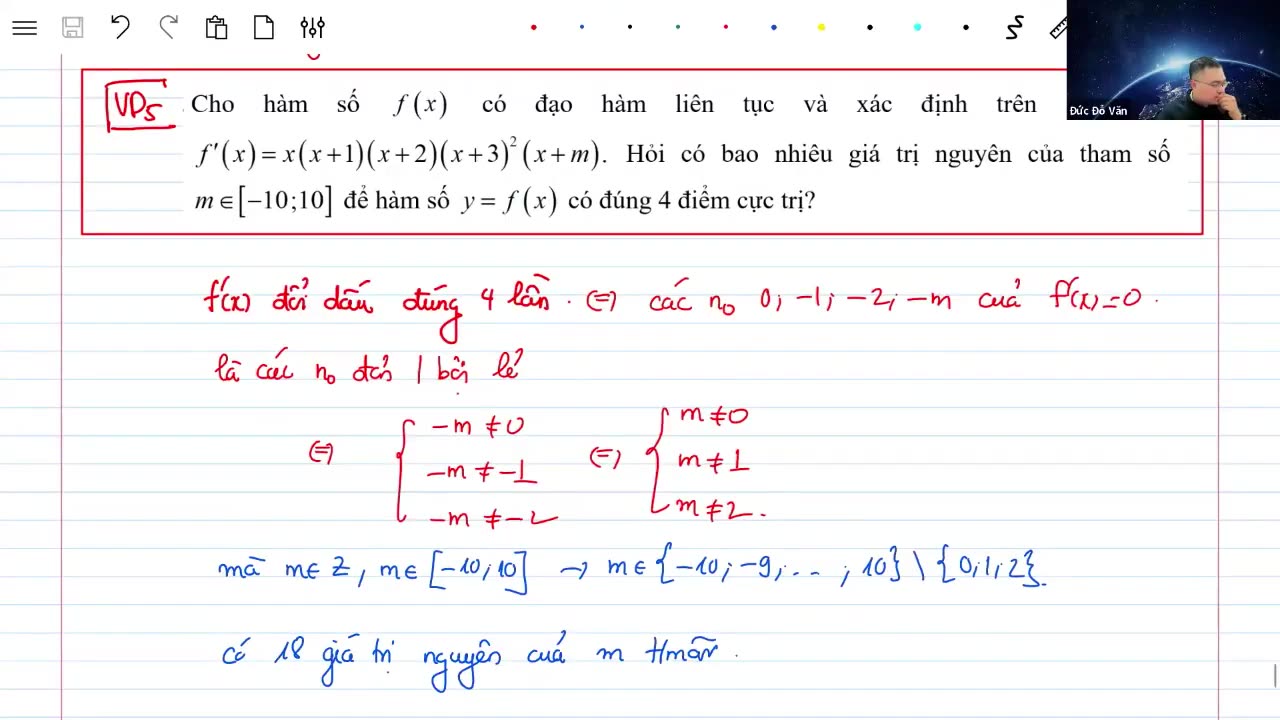 Đức Đỗ Văn
VD5 Cho hàm số f(x) có đạo hàm liên tục và xác định trên
f'(x) = x(x+1)(x+2)(x+3)²(x+m). Hỏi có bao nhiêu giá trị nguyên của tham số
m ∈ [−10;10] để hàm số y = f(x) có đúng 4 điểm cực trị?
f'(x) đổi dấu đúng 4 lần. ⇔ các no 0; -1; -2; -m của f'(x)=0.
là các no đơn / bội lẻ
⇔ { -m ≠ 0 ⇔ { m ≠ 0
-m ≠ -1 m ≠ 1
-m ≠ -2 m ≠ 2.
mà m ∈ Z, m ∈ [-10; 10] → m ∈ {-10; -9; ... ; 10} \ {0; 1; 2}.
có 18 giá trị nguyên của m tmãn.